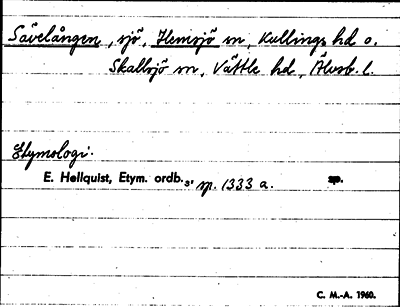 Sävelången, sjö, Hemsjö sn, Kullings hd o.
Skallsjö sn, Vättle hd, Älvsb. l.
Etymologi:
E. Hellquist, Etym. ordb.³, sp. 1333 a. sp.
C. M.-A. 1960.